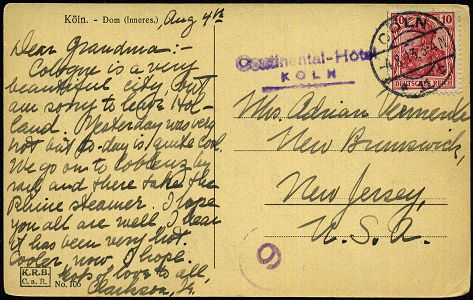 Köln. - Dom (Inneres.)
Aug 4th
Dear Grandma:-
Cologne is a very
beautiful city, but
am sorry to leave Hol-
land. Yesterday was very
hot but to-day is quite cool.
We go on to Coblenz by
rail and there take the
Rhine steamer. I hope
you all are well. I hear
it has been very hot.
Cooler now I hope.
Lots of love to all,
Clarkson, Jr.
K.R.B.
C.a.R.
No. 106
Continental-Hotel
KÖLN
CÖLN
10 10
DEUTSCHES REICH
Mrs. Adrian Vermeule
New Brunswick,
New Jersey,
U.S.A.
6